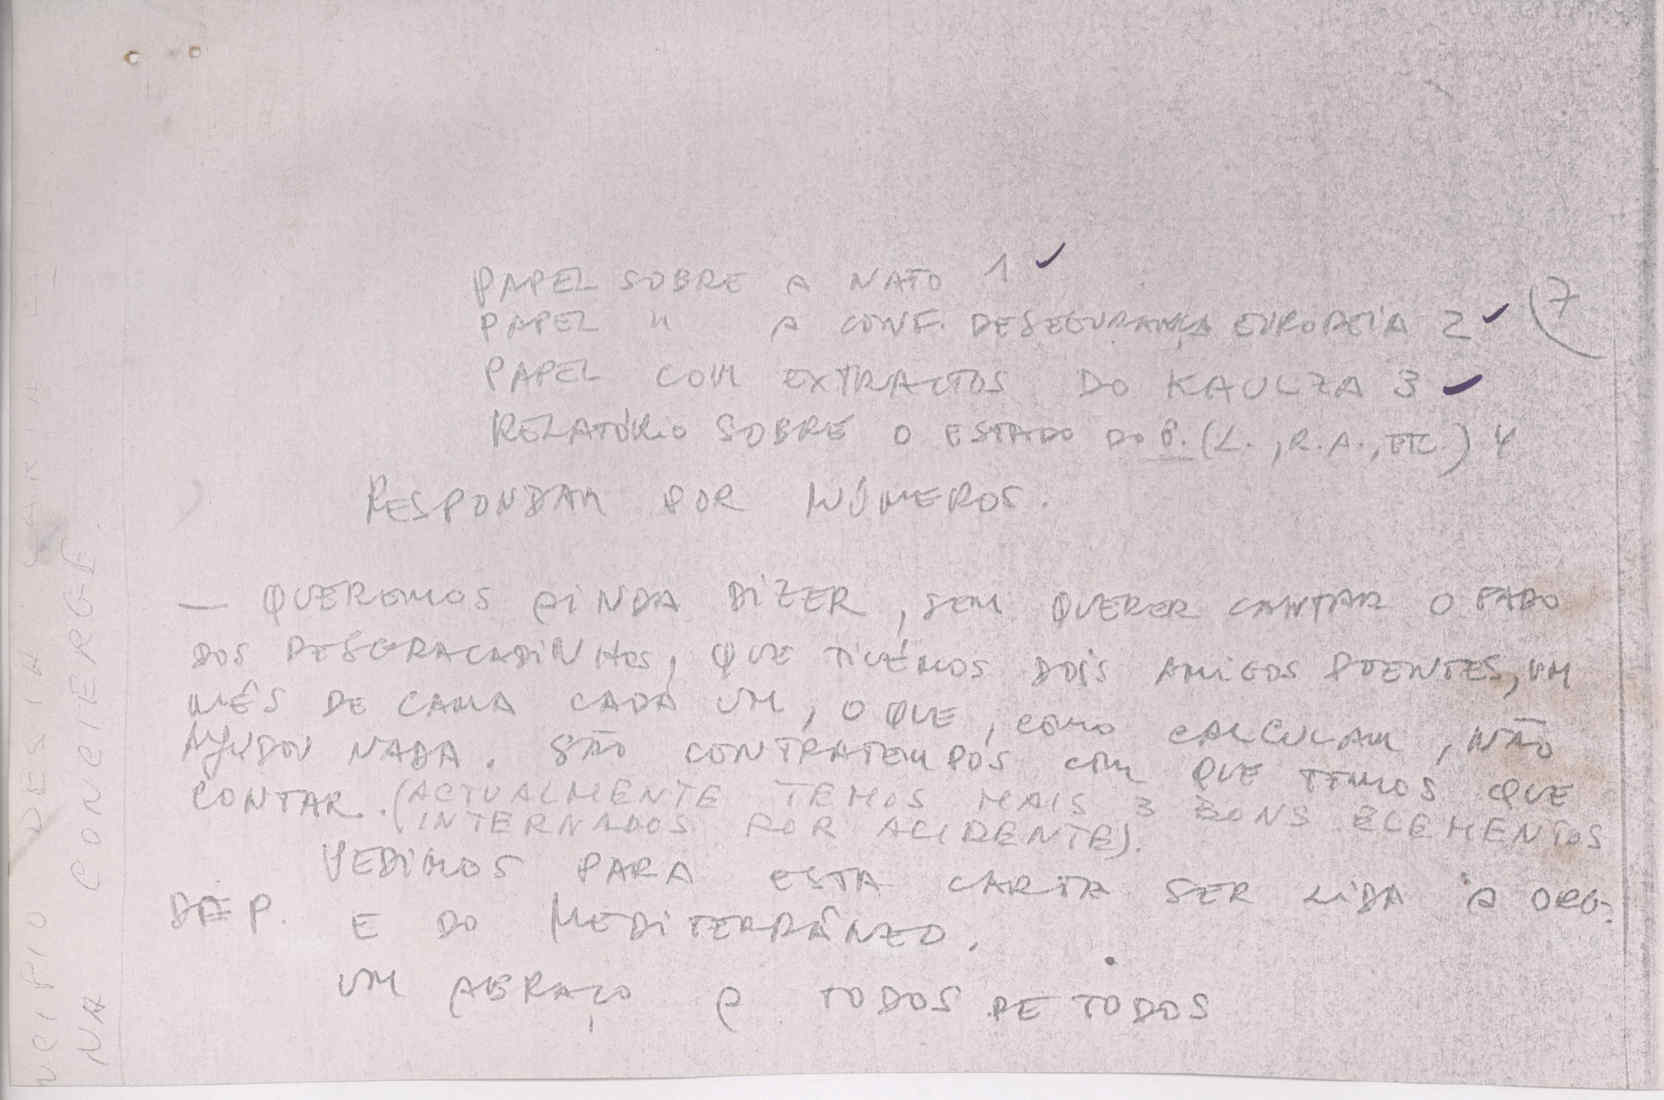 PAPEL SOBRE A NATO 1 ✓
PAPEL " A CONF. DE SEGURANÇA EUROPEIA 2 ✓ (7
PAPEL COM EXTRACTOS DO KAULZA 3 ✓
RELATÓRIO SOBRE O ESTADO DO P. (L., R.A., ETC.) 4
RESPONDAM POR NÚMEROS.
— QUEREMOS AINDA DIZER, SEM QUERER CANTAR O FADO
DOS DESGRAÇADINHOS, QUE TIVÉMOS DOIS AMIGOS DOENTES, UM
MÊS DE CAMA CADA UM, O QUE, COMO CALCULAM, NÃO
AJUDOU NADA. SÃO CONTRATEMPOS COM QUE TEMOS QUE
CONTAR. (ACTUALMENTE TEMOS MAIS 3 BONS ELEMENTOS
INTERNADOS POR ACIDENTE).
PEDIMOS PARA ESTA CARTA SER LIDA À ORG.
DE P. E DO MEDITERRÂNEO.
UM ABRAÇO A TODOS DE TODOS
NA CONCIERGE